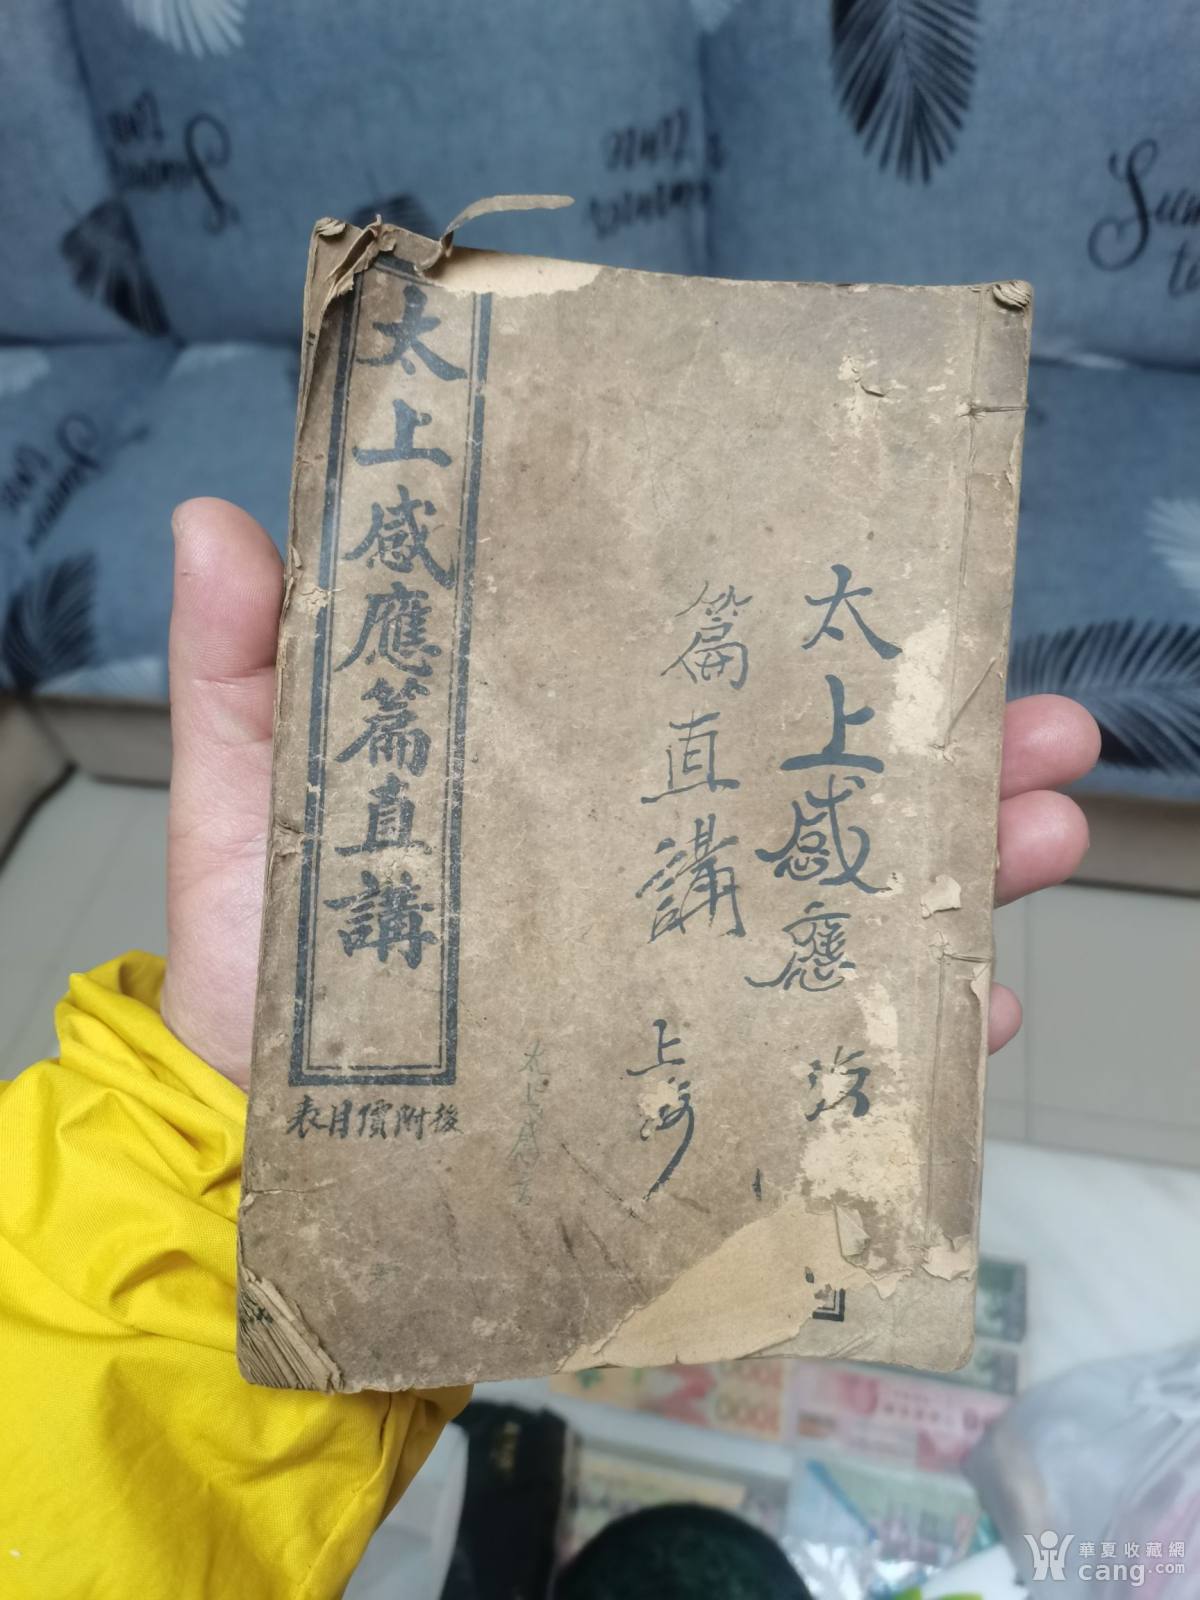 太上感應篇直講
後附價目表
太上感應
篇直講
上海
太上感
華夏收藏網
cang.com